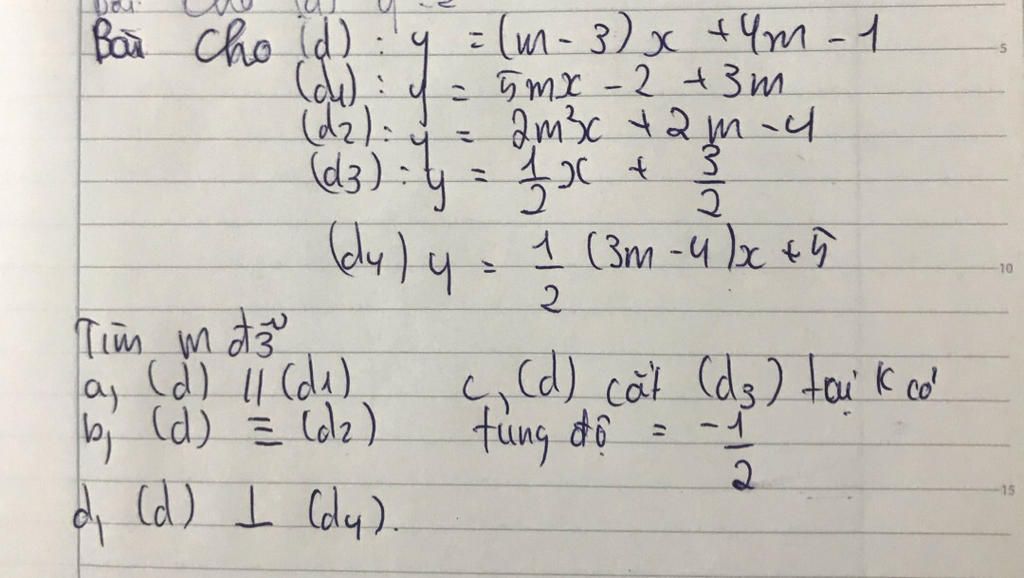 Bài Cho (d) : y = (m - 3) x + 4m - 1
(d1) : y = 5mx - 2 + 3m
(d2) : y = 2m²x + 2m - 4
(d3) : y = 1/2 x + 3/2
(d4) y = 1/2 (3m - 4)x + 5
Tìm m để
a, (d) // (d1) c, (d) cắt (d3) tại K có
b, (d) ≡ (d2) tung độ = -1/2
d, (d) ⊥ (d4).